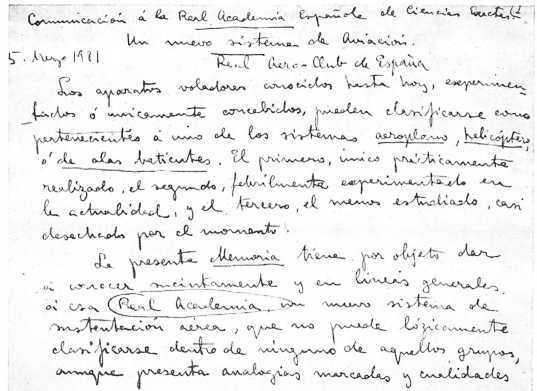 Comunicación á la Real Academia Española de Ciencias Exactas
Un nuevo sistema de Aviación.
5. Marzo 1921 Real Aero-Club de España
Los aparatos voladores conocidos hasta hoy, experimen
tados ó únicamente concebidos, pueden clasificarse como
pertenecientes á uno de los sistemas aeroplano, helicóptero,
ó de alas batientes. El primero, único prácticamente
realizado, el segundo, febrilmente experimentado en
la actualidad, y el tercero, el menos estudiado, casi
desechado por el momento.
La presente Memoria tiene por objeto dar
á conocer sucintamente y en líneas generales
á esa Real Academia, un nuevo sistema de
sustentación aérea, que no puede lógicamente
clasificarse dentro de ninguno de aquellos grupos,
aunque presenta analogías marcadas y cualidades